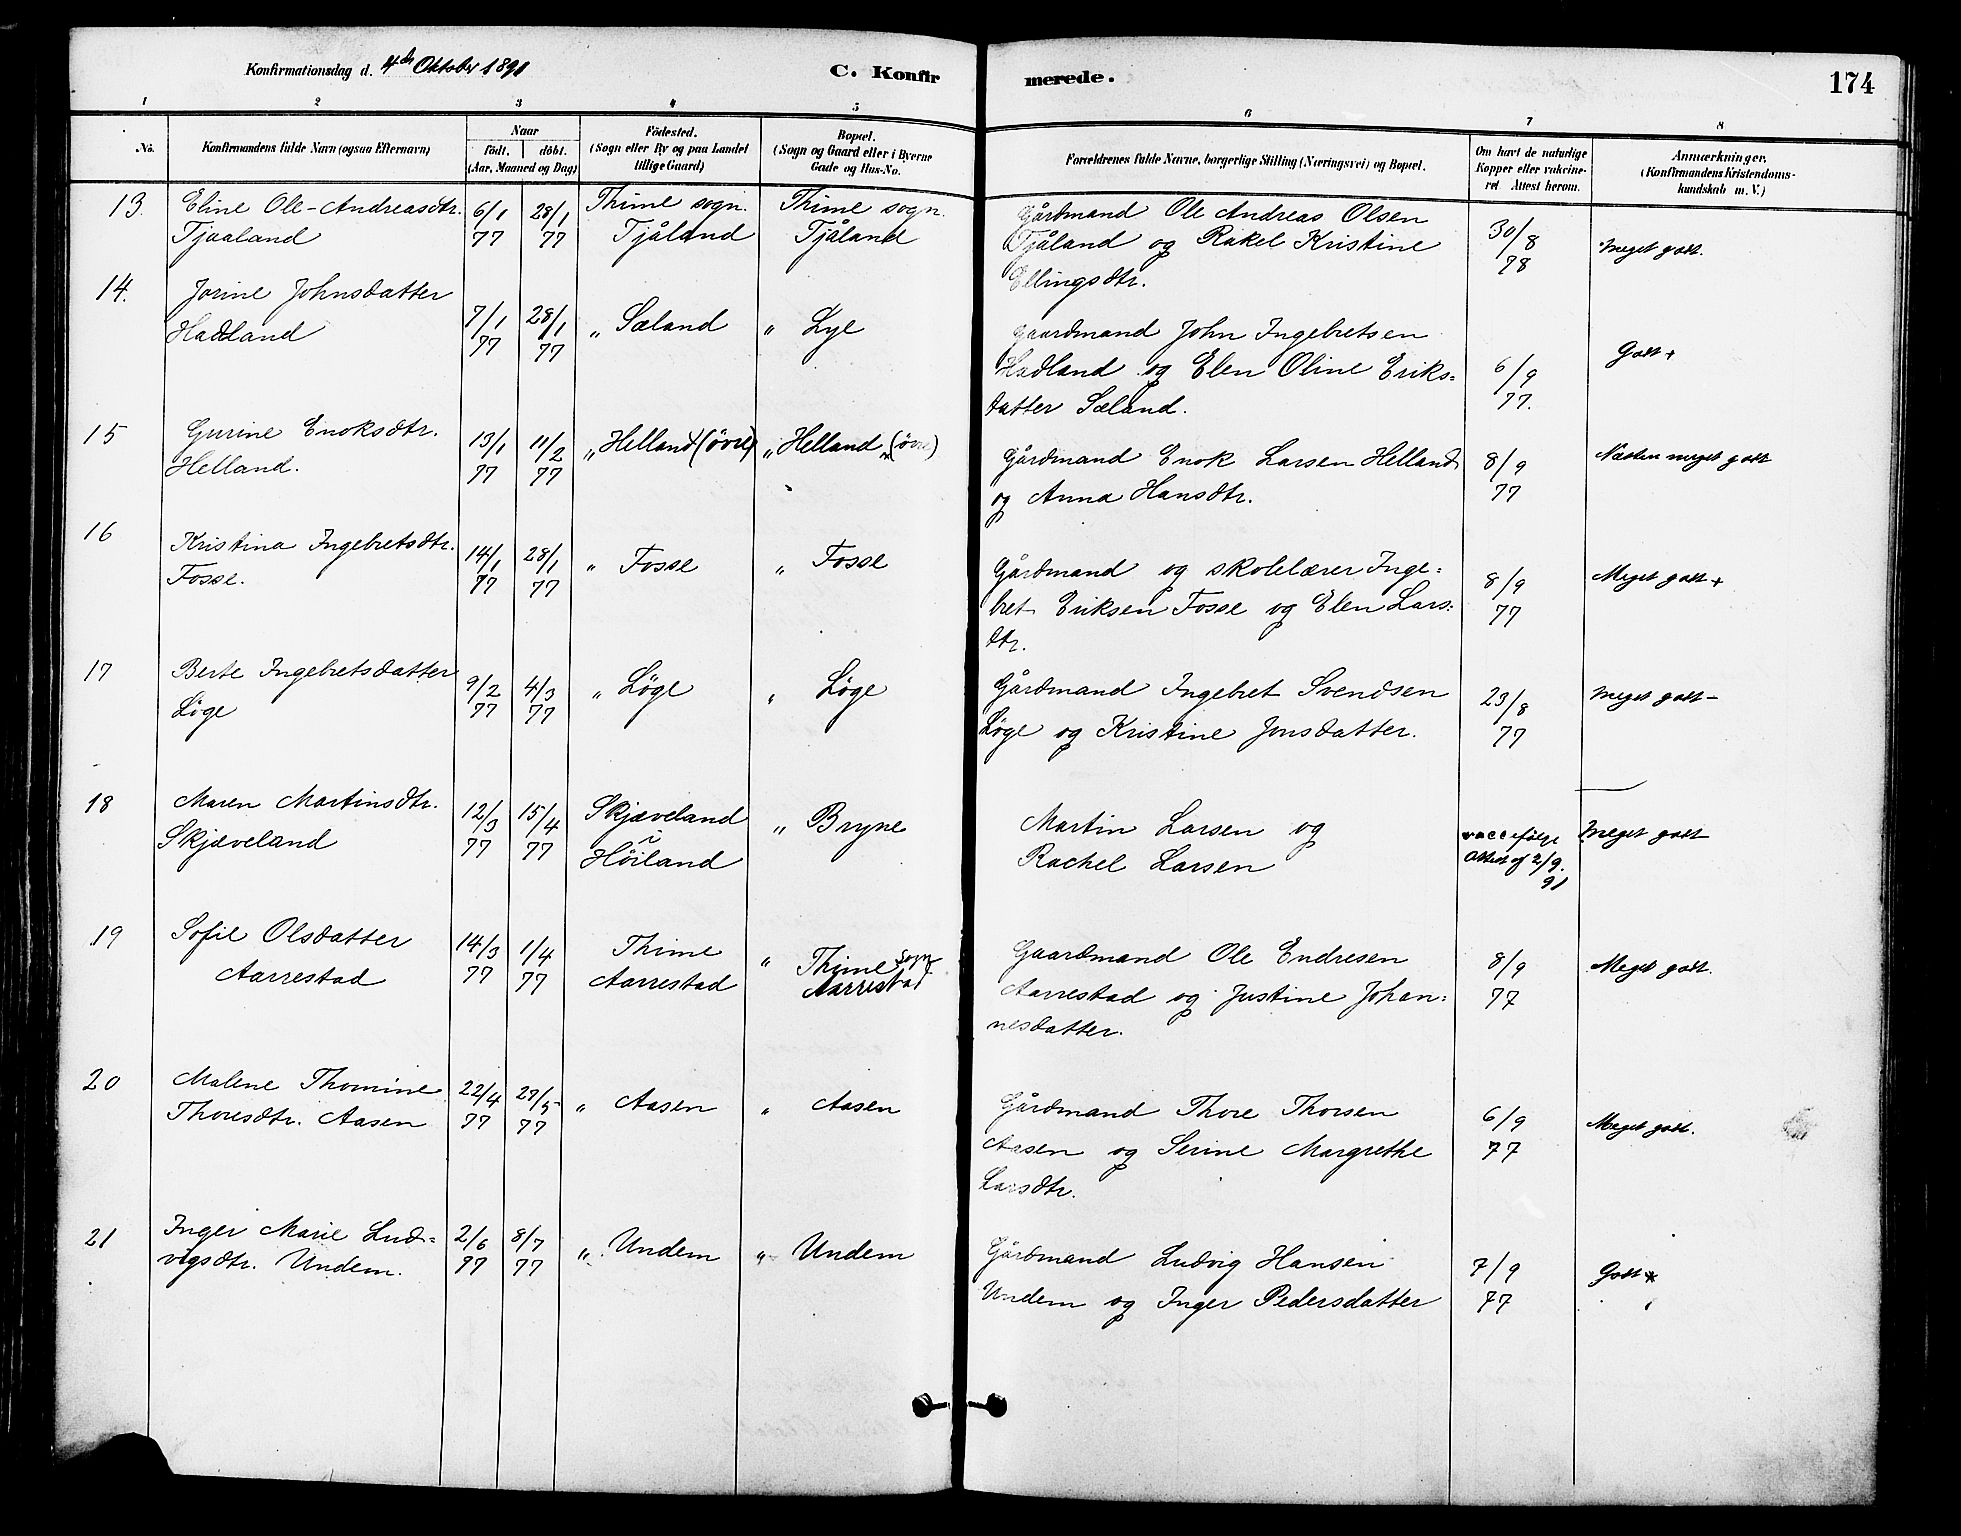 Konfirmationsdag d. 4de Oktober 1891
C. Konfirmerede.
174
1 2 3 4 5 6 7 8
No.
Konfirmandens fulde Navn (ogsaa Efternavn)
Naar
födt. döbt.
(Aar, Maaned og Dag)
Födested.
(Sogn eller By og paa Landet
tillige Gaard)
Bopæl.
(Sogn og Gaard eller i Byerne
Gade og Hus-No.
Forældrenes fulde Navne, borgerlige Stilling (Næringsvei) og Bopæl.
Om havt de naturlige
Kopper eller vakcine-
ret Attest herom.
Anmærkninger.
(Konfirmandens Kristendoms-
kundskab m. V.)
13. Eline Ole-Andreasdtr. 6/1 28/1 Thime sogn. Thime sogn. Gårdmand Ole Andreas Olsen 30/8
Tjaaland 77 77 Tjåland Tjåland Tjåland og Rakel Kristine 78 Meget godt.
Ellingsdtr.
14. Jorine Johnsdatter 7/1 28/1 " Sæland " Lye Gaardmand John Ingebretsen
Hadland 77 77 Hadland og Elen Oline Eriks= 6/9 Godt +
datter Sæland. 77.
15 Gurine Enoksdtr. 13/1 11/2 " Helland (övre) " Helland (övre) Gårdmand Enok Larsen Helland 8/9 Næsten meget godt
Helland. 77 77 og Anna Hansdtr. 77
16 Kristina Ingebretsdtr. 14/1 28/1 " Fosse " Fosse Gårdmand og skolelærer Inge= 8/9 Meget godt +
Fosse. 77 77 bret Eriksen Fosse og Elen Lars= 77
dtr.
17 Berte Ingebretsdatter 9/2 4/3 " Löge " Löge Gårdmand Ingebret Svendsen 23/8 Meget godt -
Löge 77 77 Löge og Kristine Jonsdatter. 77
18 Maren Martinsdtr. 12/3 15/4 Skjæveland " Bryne Martin Larsen og vacc efølge Meget godt
Skjæveland 77 77 i Höiland Rachel Larsen Attest af 2/9.
91
19 Sofie Olsdatter 14/3 1/4 Thime " Thime sogn Gaardmand Ole Endresen 8/9 Meget godt.
Aarrestad 77 77 Aarrestad Aarrestad Aarrestad og Justine Johan= 77
nesdatter.
20 Malene Thomine 22/4 29/5 " Aasen " Aasen Gårdmand Thore Thorsen 6/9 Meget godt.
Thoresdtr. Aasen 77 77 Aasen og Serine Margrethe 77
Larsdtr.
21 Inger Marie Lud= 2/6 8/7 " Undem " Undem Gårdmand Ludvig Hansen 7/9 Godt
vigsdtr. Undem. 77 77 Undem og Inger Pedersdatter 77